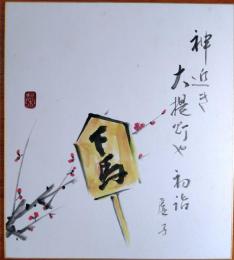 神近き
大提灯や 初詣
虚子
下馬